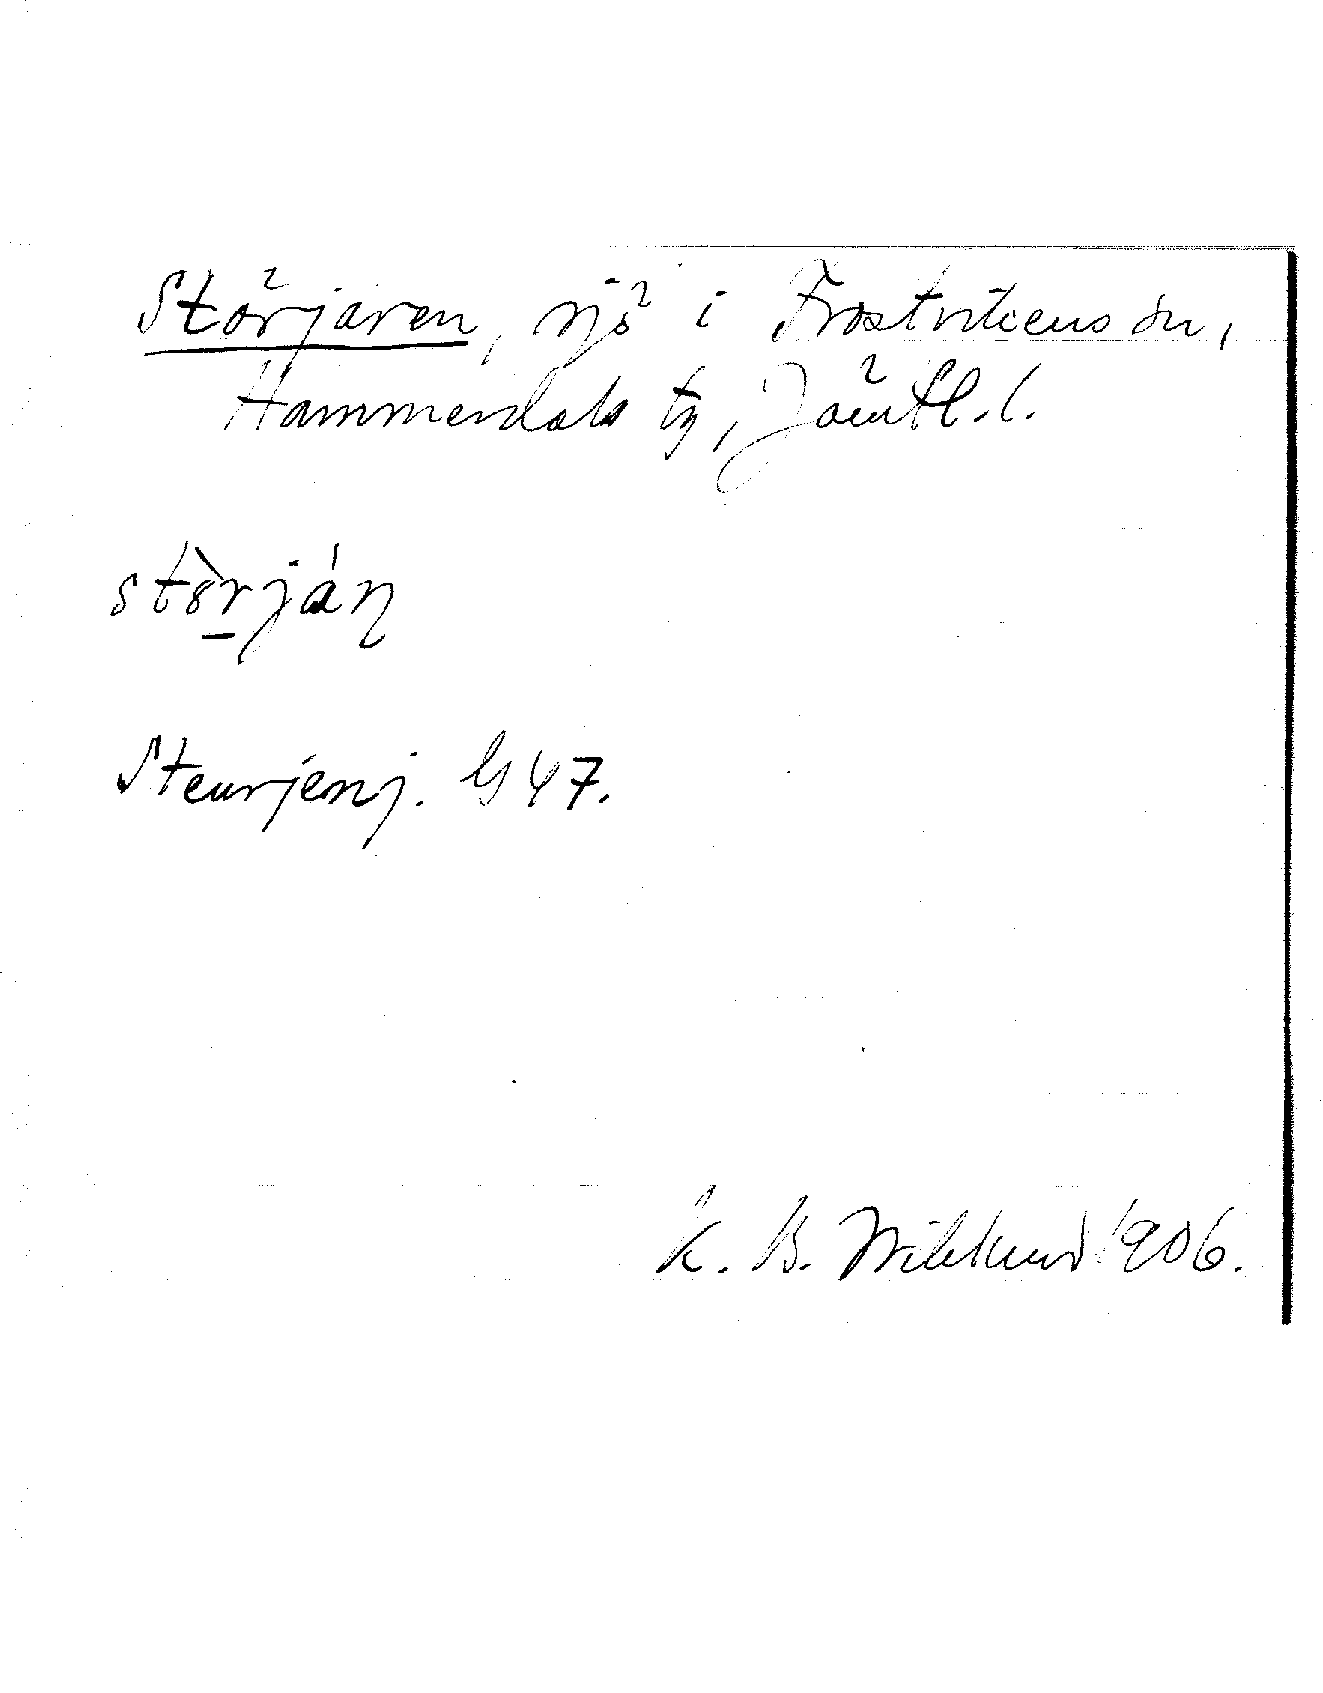 Störjaren, sjö i Frostvikens sn,
Hammerdals tg, Jämtl. l.
stòrján
Steurjenj. G 47.
K. B. Wiklund 1906.